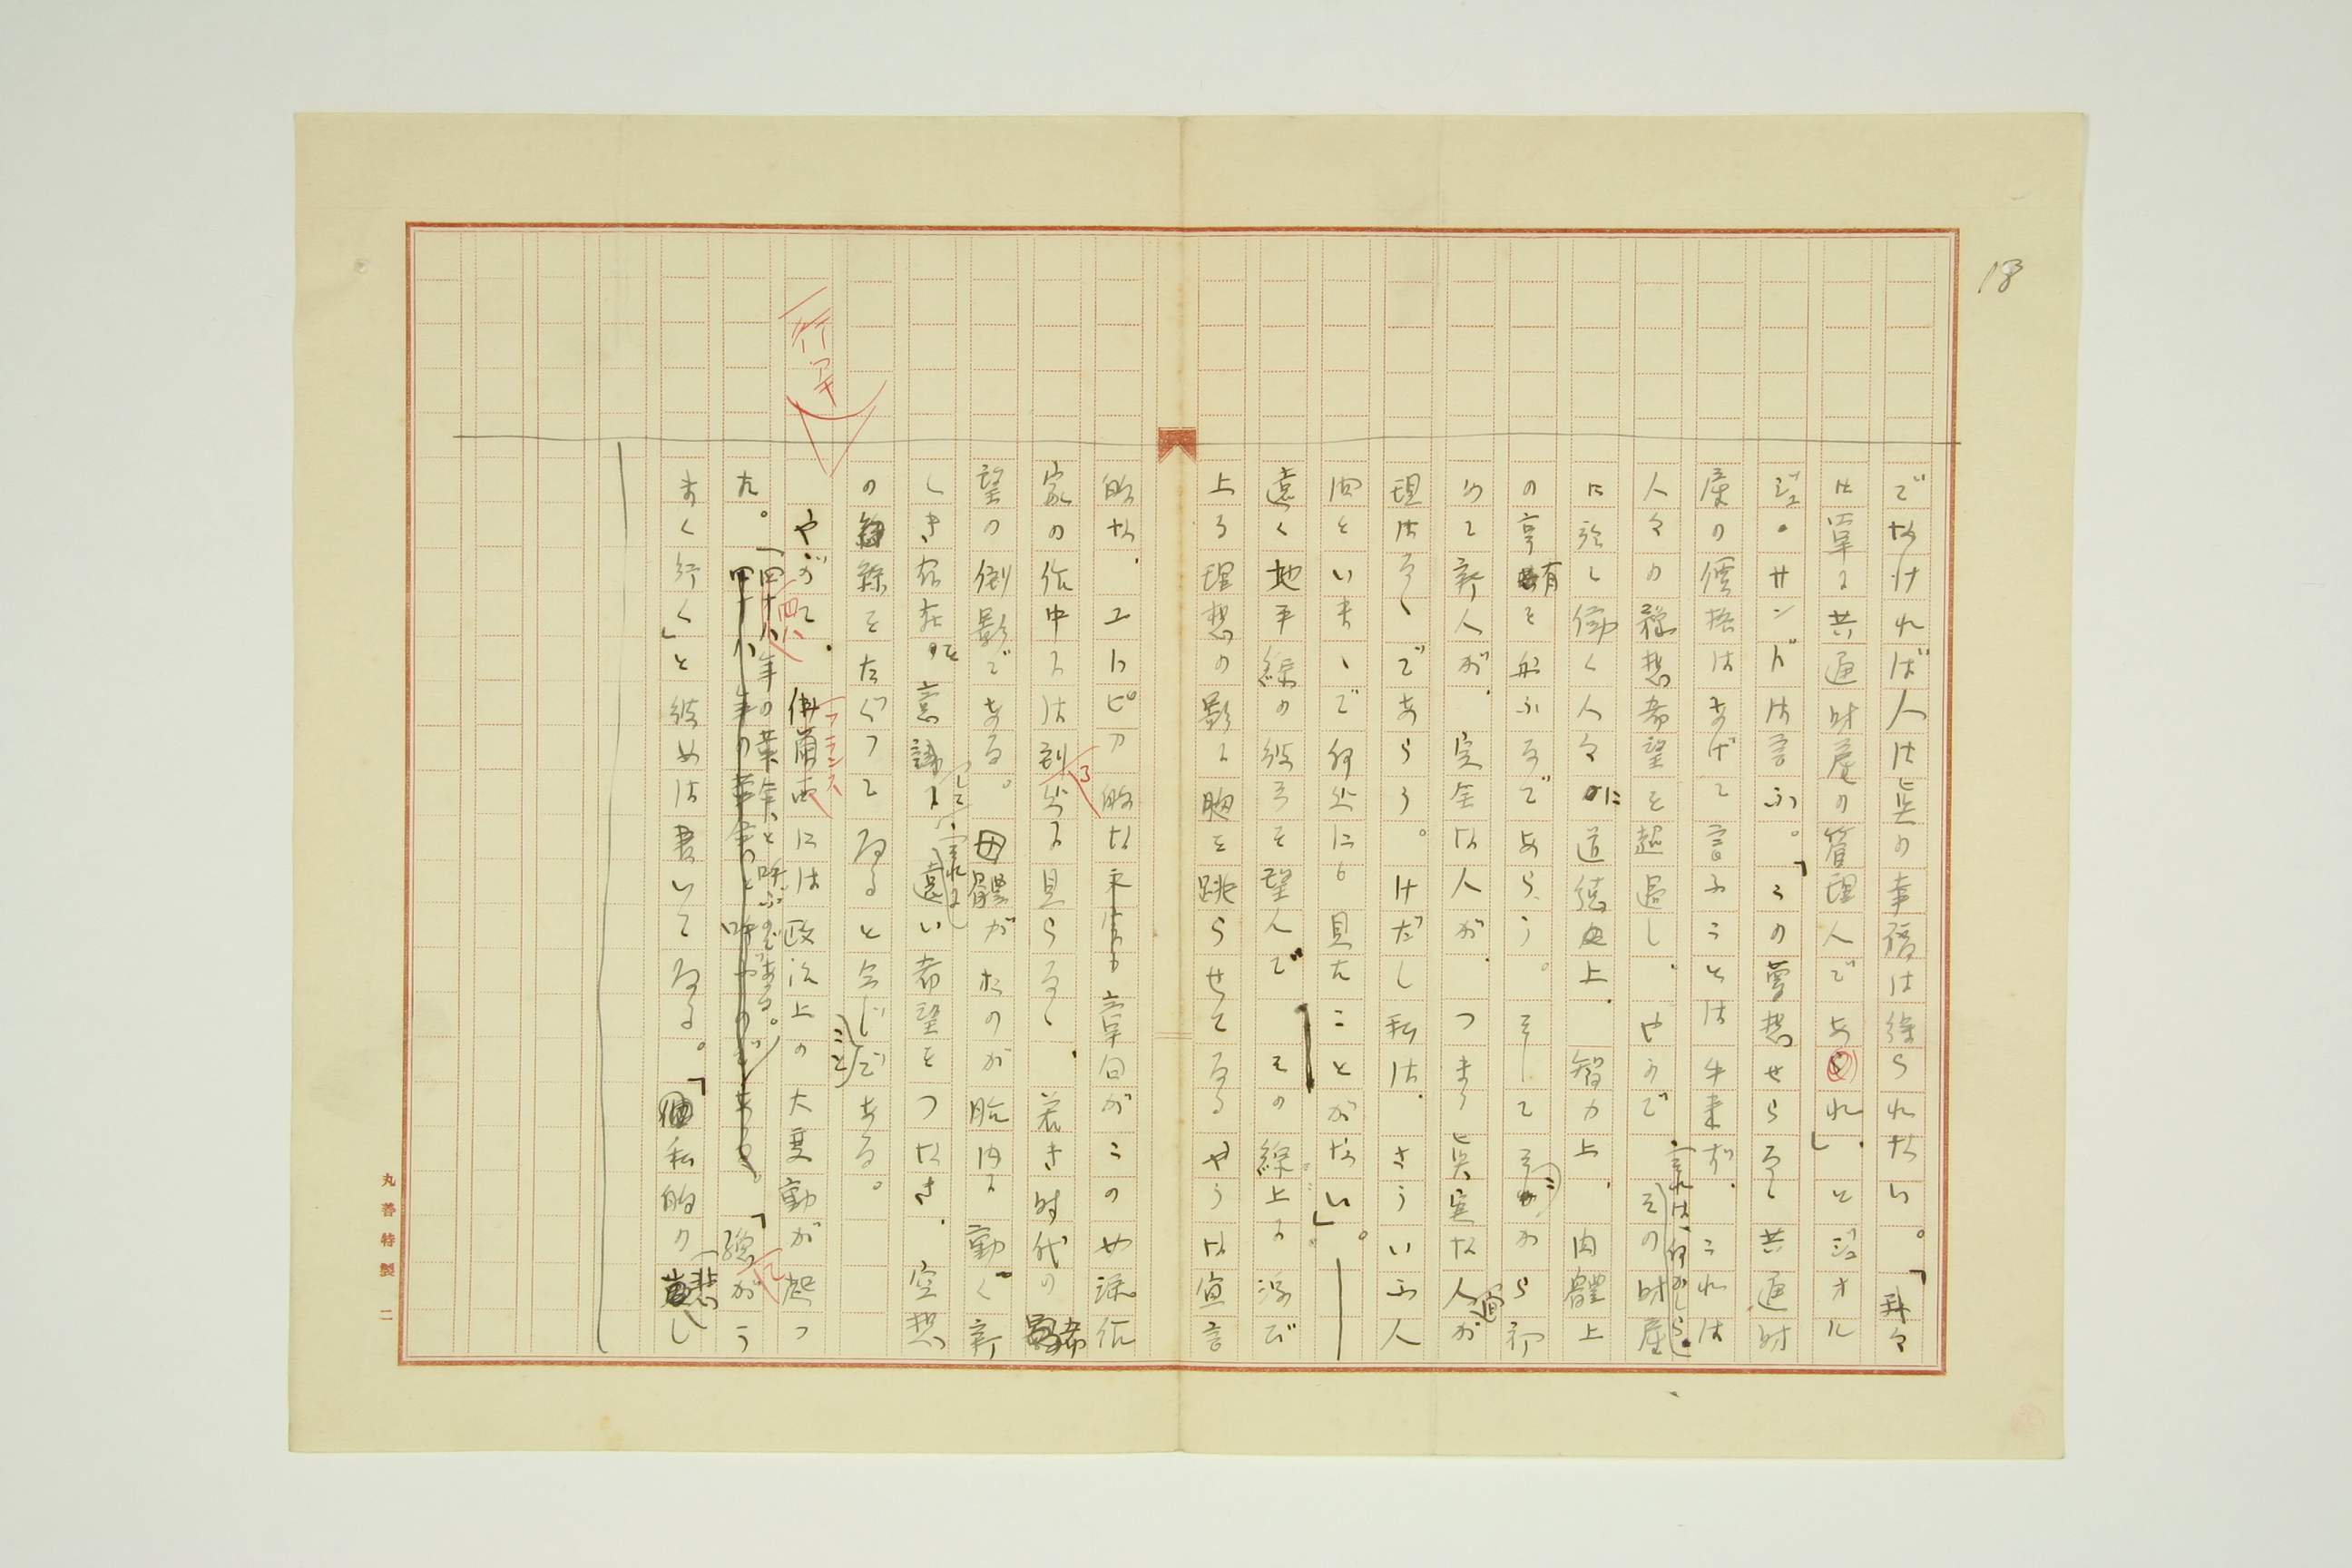 18
でなければ人は真の幸福は得られない。「我々
は單に共通財産の管理人であれ」とジヨオル
ジユ・サンドは言ふ。「この夢想せられる共通財
産の價格はあげて言ふことは出來ず、これは
言はゞ何かしら
人々の福想希望を超過し、やがてその財産
に於し働く人々に道徳上、智力上、肉體上
の享有を與ふるであらう。そしてそこから初
めて新人が、完全な人が、つまり眞実な人が
現はるゝであらう。けだし私は、さういふ人
間をいまゝで何処にも見たことがない」。――
遠く地平線の彼方を望んで――その線上に浮び
上る理想の影に胸を跳らせてゐるやうな宣言
的な、ユトピカ的な章句がこの女流作
家の作中には到る処に見らるゝ、若き時代の希
望の倒影である。母體がたのが胎内に動く新
しき存在のを意識して、定れぬ遠い希望をつなき、空想
の絲をたぐつてゐると同じことである。
行アキ
やがて、フランスには政治上の大変動が起つ
た。「四八年の革命」と呼ぶのである。「総てがう
まく行く」と彼女は書いてゐる。「私的の悲し
丸善特製 二